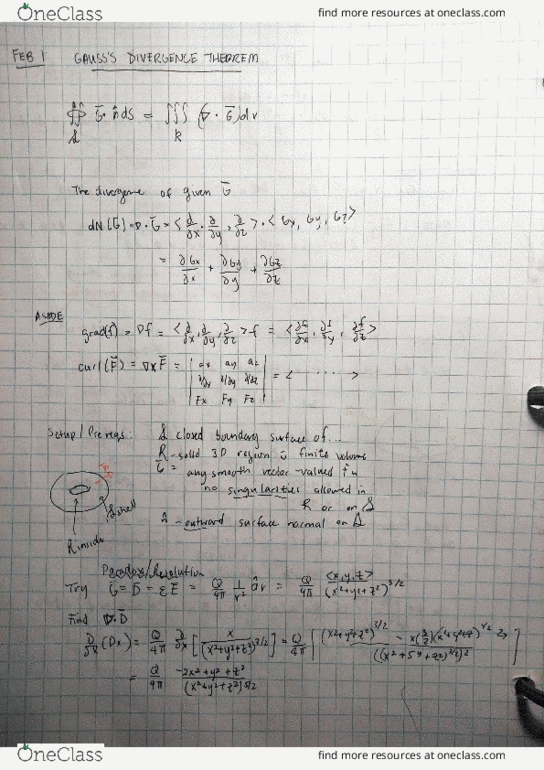 OneClass
find more resources at oneclass.com
FEB 1 GAUSS'S DIVERGENCE THEOREM
∯ Ḡ · n̂ dS = ∭ (∇ · Ḡ) dv
S R
The divergence of given Ḡ
div(Ḡ) = ∇ · Ḡ = <∂/∂x, ∂/∂y, ∂/∂z> · <Gx, Gy, Gz>
= ∂Gx/∂x + ∂Gy/∂y + ∂Gz/∂z
ASIDE
grad(f) = ∇f = <∂/∂x, ∂/∂y, ∂/∂z> f = <∂f/∂x, ∂f/∂y, ∂f/∂z>
curl(F̄) = ∇ x F̄ = | ax ay az | = < ... >
∂/∂x ∂/∂y ∂/∂z
Fx Fy Fz
Setup / Prereqs: S closed boundary surface of...
R - solid 3D region w finite volume
Ḡ = any smooth vector-valued fn
no singularities allowed in
R or on S
n̂ - outward surface normal on S
S shell
R inside
Paradox/Resolution
Try Ḡ = D̄ = εĒ = Q/4π 1/r² âr = Q/4π <x,y,z>/(x²+y²+z²)^3/2
Find ∇·D̄
∂/∂x (Dx) = Q/4π ∂/∂x [x/(x²+y²+z²)^3/2] = Q/4π [((x²+y²+z²)^3/2 - x(3/2)(x²+y²+z²)^1/2 2x)/((x²+y²+z²)^3/2)²]
= Q/4π (-2x²+y²+z²)/(x²+y²+z²)^5/2
OneClass
find more resources at oneclass.com